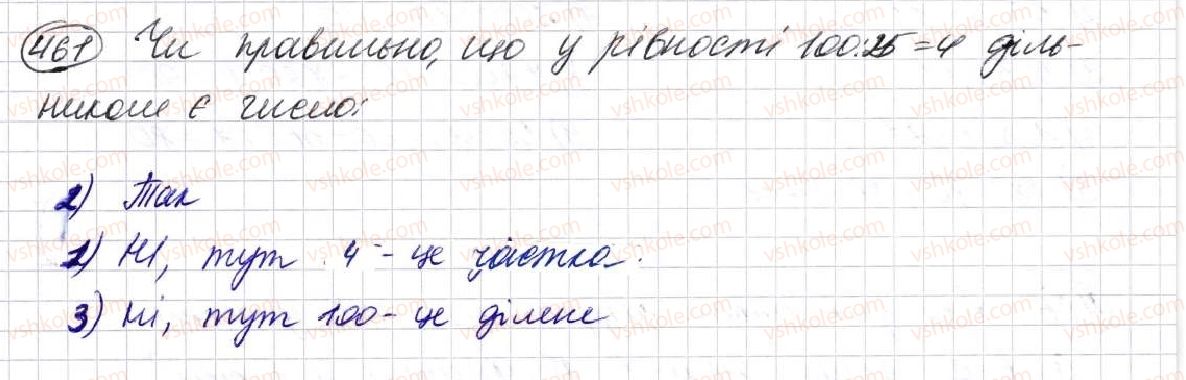 461 Чи правильно, що у рівності 100:25=4 діль-
ником є число:
2) Так
1) Ні, тут 4 - це частка.
3) Ні, тут 100 - це ділене